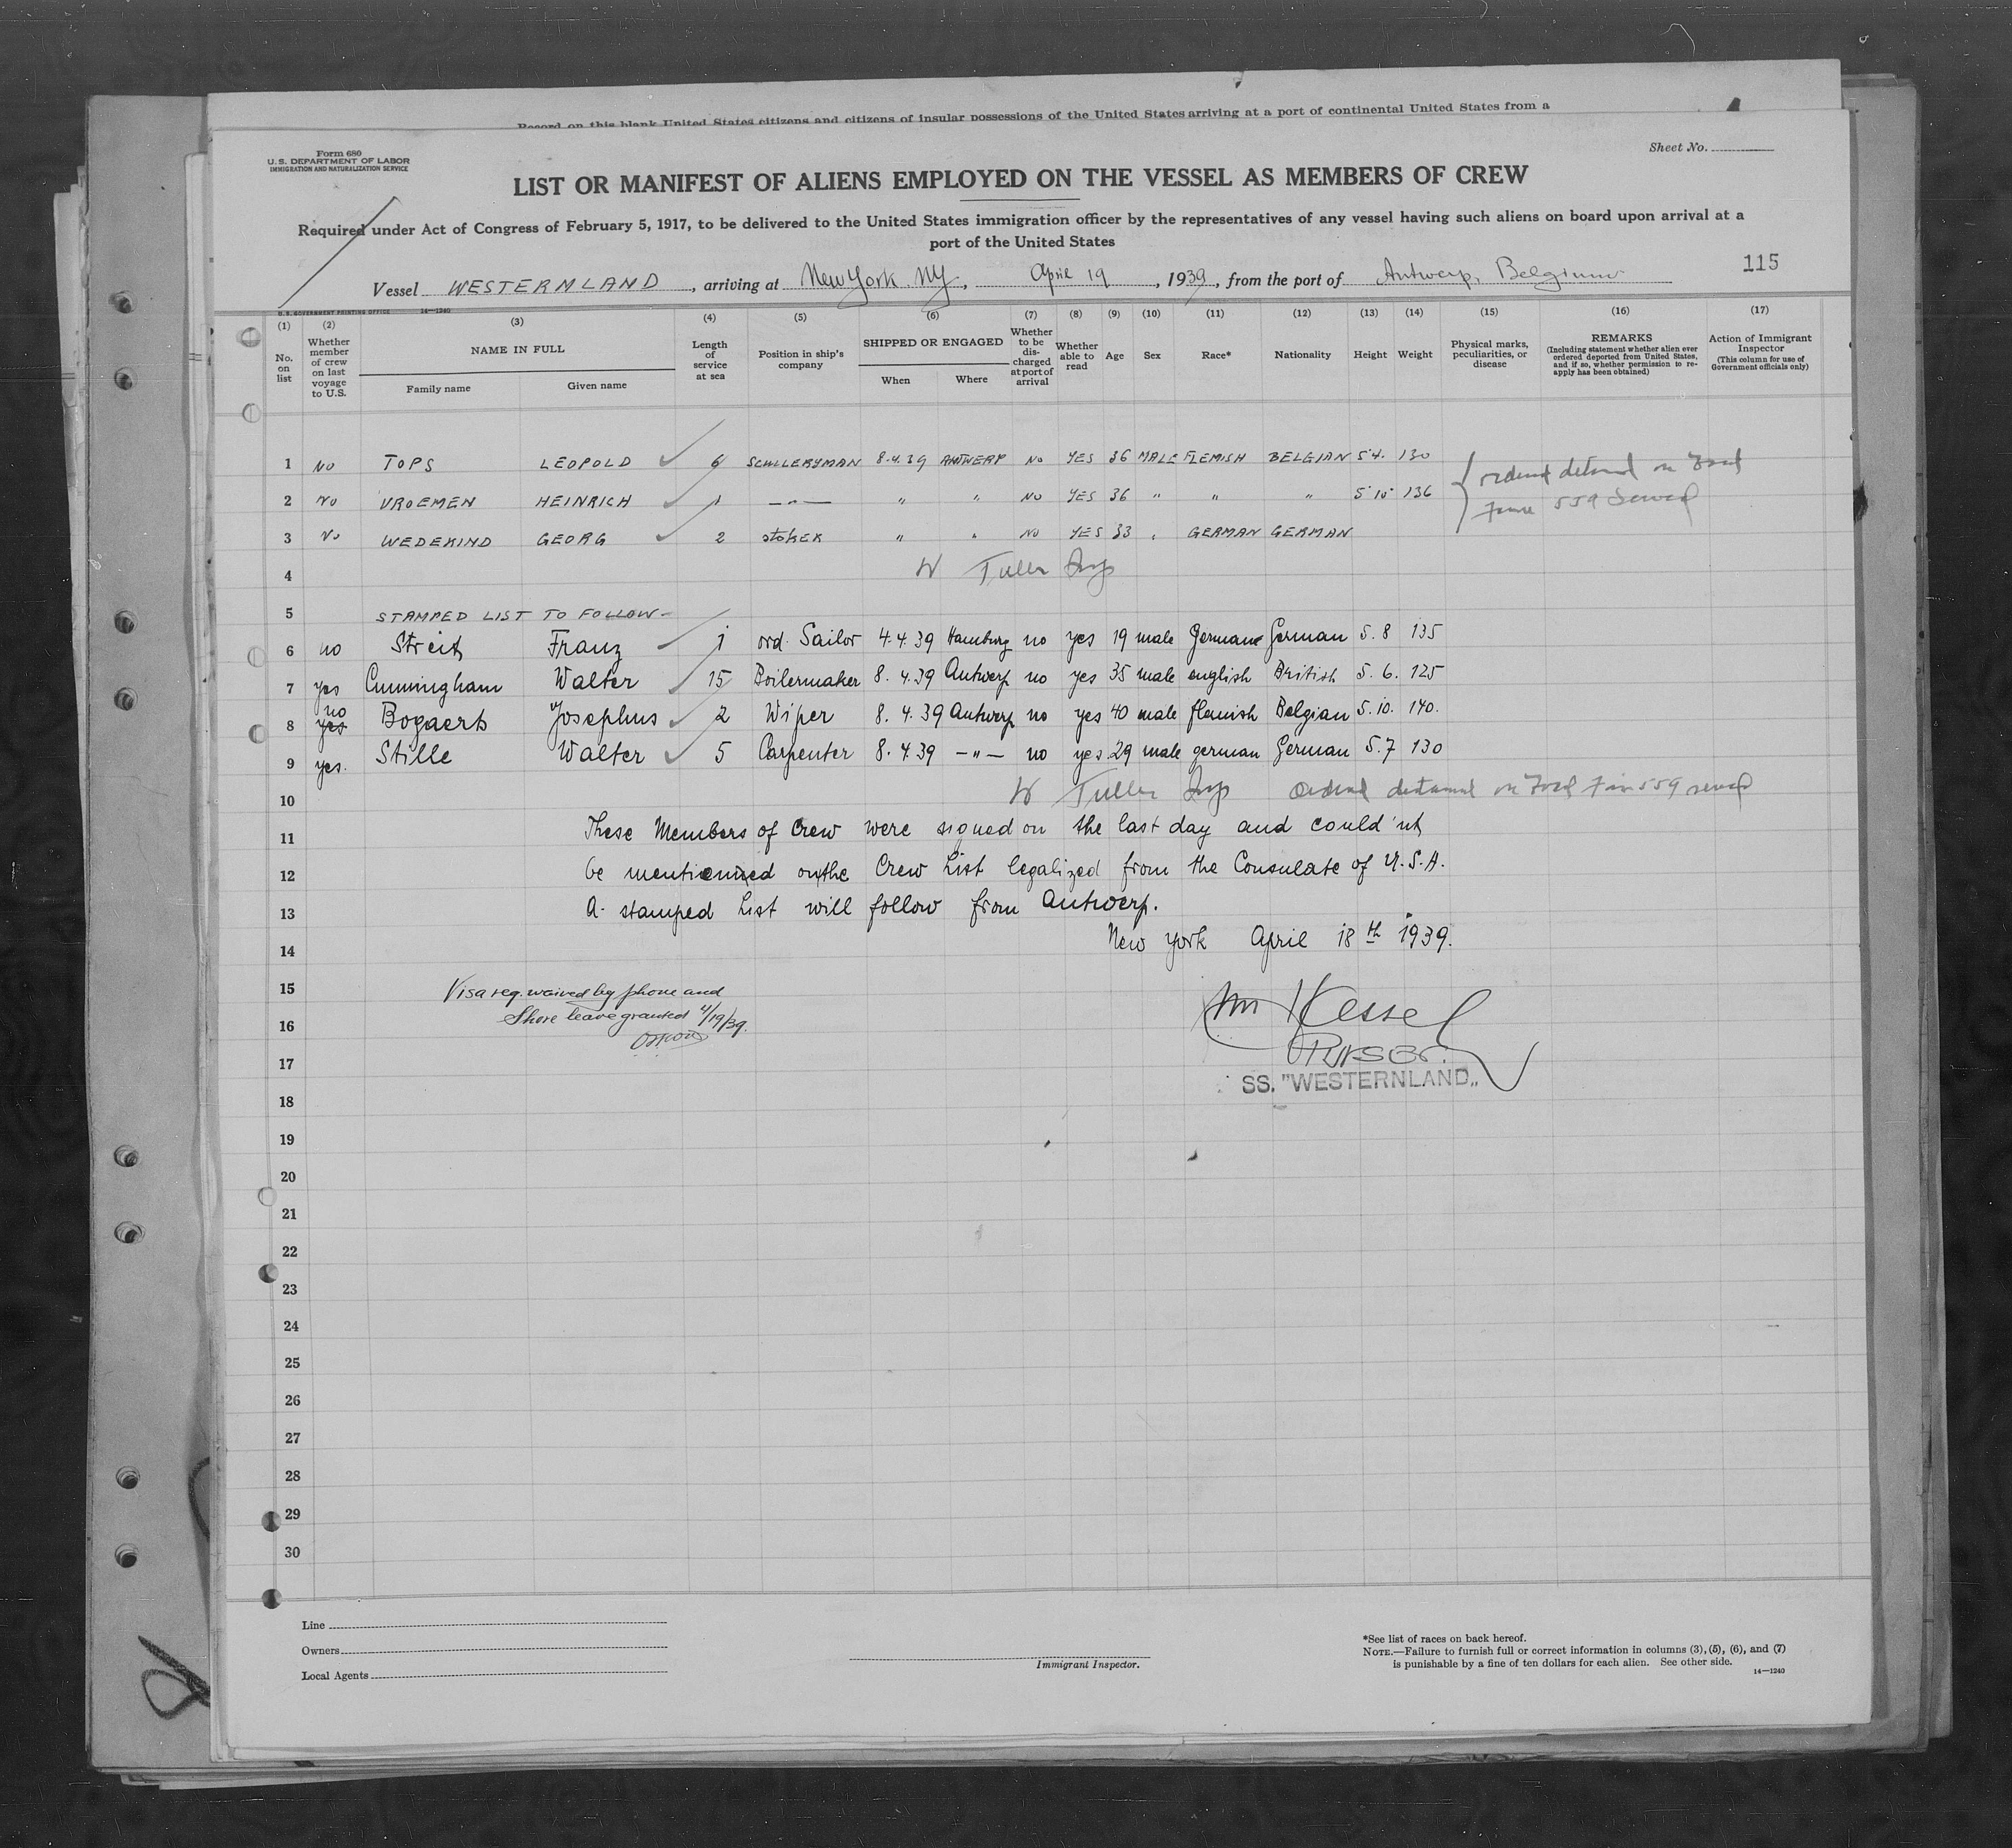 Record on this blank United States citizens and citizens of insular possessions of the United States arriving at a port of continental United States from a
Form 680
U.S. DEPARTMENT OF LABOR
IMMIGRATION AND NATURALIZATION SERVICE
Sheet No.
LIST OR MANIFEST OF ALIENS EMPLOYED ON THE VESSEL AS MEMBERS OF CREW
Required under Act of Congress of February 5, 1917, to be delivered to the United States immigration officer by the representatives of any vessel having such aliens on board upon arrival at a
port of the United States
115
Vessel WESTERNLAND, arriving at New York. NY, April 19, 1939, from the port of Antwerp, Belgium
U.S. GOVERNMENT PRINTING OFFICE 14—1240
(1) (2) (3) (4) (5) (6) (7) (8) (9) (10) (11) (12) (13) (14) (15) (16) (17)
No. on list
Whether member of crew on last voyage to U.S.
NAME IN FULL
Family name Given name
Length of service at sea
Position in ship's company
SHIPPED OR ENGAGED
When Where
Whether to be discharged at port of arrival
Whether able to read
Age
Sex
Race*
Nationality
Height
Weight
Physical marks, peculiarities, or disease
REMARKS
(Including statement whether alien ever ordered deported from United States, and if so, whether permission to reapply has been obtained)
Action of Immigrant Inspector
(This column for use of Government officials only)
1 NO TOPS LEOPOLD 6 SCULLERYMAN 8.4.39 ANTWERP NO YES 36 MALE FLEMISH BELGIAN 5'4. 130
2 NO VROEMEN HEINRICH 1 —"— " " NO YES 36 " " " 5'10 136
3 NO WEDEKIND GEORG 2 STOKER " " NO YES 33 " GERMAN GERMAN
ordered detained on board
Form 559 Served
4 W Tuller Insp
5 STAMPED LIST TO FOLLOW-
6 no Streit Franz 1 ord. Sailor 4.4.39 Hamburg no yes 19 male German German 5.8 135
7 yes Cunningham Walter 15 Boilermaker 8.4.39 Antwerp no yes 35 male english British 5.6. 125
8 no yes Bogaerts Josephus 2 Wiper 8.4.39 Antwerp no yes 40 male flemish Belgian 5.10. 140.
9 yes. Stille Walter 5 Carpenter 8.4.39 —"— no yes 29 male german German 5.7 130
10 W Tuller Insp Ordered detained on board Form 559 served
11 These Members of Crew were signed on the last day and could'nt
12 be mentionned on the Crew List legalized from the Consulate of U.S.A.
13 A stamped List will follow from Antwerp.
14 New York April 18th 1939.
15 Visa req. waived by phone and
16 Shore leave granted 4/19/39.
Kessel
Purser.
17
SS. "WESTERNLAND"
18
19
20
21
22
23
24
25
26
27
28
29
30
Line
Owners
Local Agents
Immigrant Inspector.
*See list of races on back hereof.
NOTE.—Failure to furnish full or correct information in columns (3), (5), (6), and (7)
is punishable by a fine of ten dollars for each alien. See other side.
14—1240